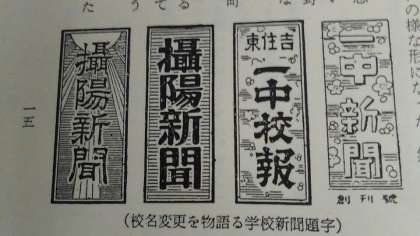 一中新聞
創刊號
東住吉
一中校報
攝陽新聞
攝陽新聞
一五
(校名変更を物語る学校新聞題字)